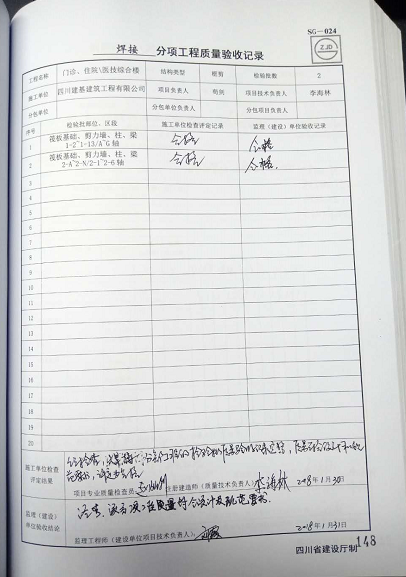 SG-024
焊接 分项工程质量验收记录
ZJD
工程名称 门诊、住院\医技综合楼 结构类型 框剪 检验批数 2
施工单位 四川建基建筑工程有限公司 项目负责人 项目技术负责人 李海林
分包单位 分包单位负责人 分包项目负责人
序号 检验批部位、区段 施工单位检查评定记录 监理(建设)单位验收记录
1 筏板基础、剪力墙、柱、梁 1-2~1-13/A~G轴 合格 合格
2 筏板基础、剪力墙、柱、梁 2-A~2-N/2-1~2-6轴 合格 合格.
3
4
5
6
7
8
9
10
11
12
13
14
15
16
17
18
19
20
施工单位检查评定结果
项目专业质量检查员: 注册建造师(质量技术负责人): 李海林 2018年1月30日
监理(建设)单位验收结论 符合设计及规范要求
监理工程师(建设单位项目技术负责人): 2018年1月31日
四川省建设厅制
148